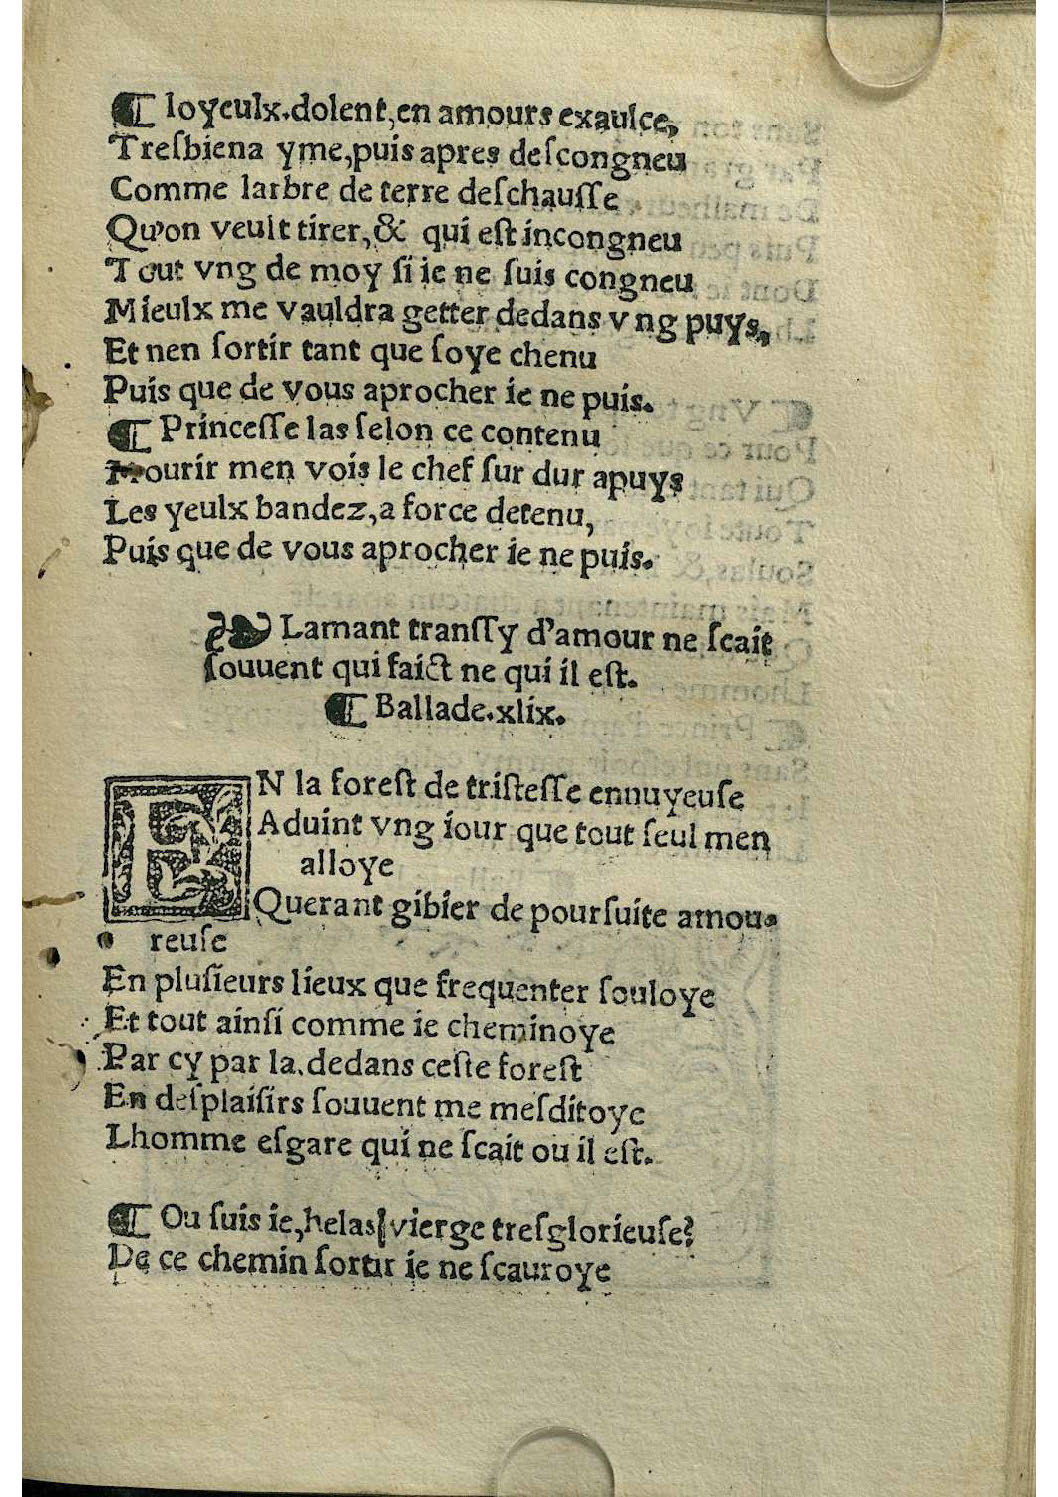 ¶ Ioyeulx.dolent,en amours exaulce,
Treſbiena yme,puis apres deſcongneu
Comme larbre de terre deſchauſſe
Qu'on veult tirer,& qui eſt incongneu
Tout vng de moy ſi ie ne ſuis congneu
Mieulx me vauldra getter dedans vng puys,
Et nen ſortir tant que ſoye chenu
Puis que de vous aprocher ie ne puis.
¶ Princeſſe las ſelon ce contenu
Mourir men vois le chef ſur dur apuys
Les yeulx bandez,a force detenu,
Puis que de vous aprocher ie ne puis.
❧ Lamant tranſſy d'amour ne ſcait
ſouuent qui faict ne qui il eſt.
¶ Ballade.xlix.
EN la foreſt de triſteſſe ennuyeuſe
Aduint vng iour que tout ſeul men
alloye
Querant gibier de pourſuite amou-
reuſe
En pluſieurs lieux que frequenter ſouloye
Et tout ainſi comme ie cheminoye
Par cy par la.dedans ceſte foreſt
En deſplaiſirs ſouuent me meſditoye
Lhomme eſgare qui ne ſcait ou il eſt.
¶ Ou ſuis ie,helas!vierge treſglorieuſe?
De ce chemin ſortir ie ne ſcauroye